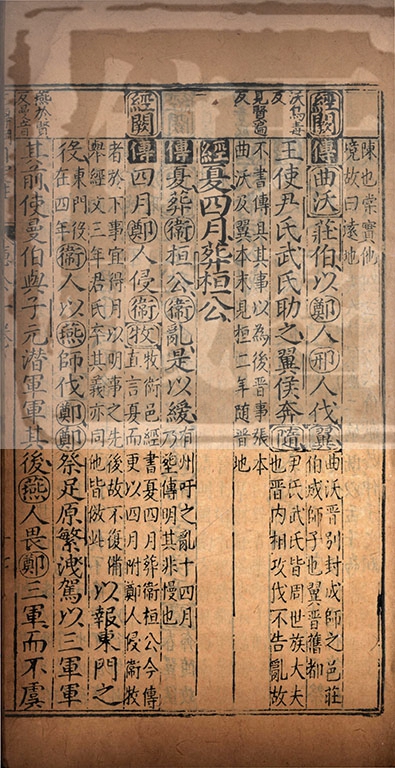 陳也棠實他
境故曰遠地
沃烏毒
反
經闕傳曲沃莊伯以鄭人邢人伐翼
曲沃晉別封成師之邑莊
伯成師子也翼晉舊都
王使尹氏武氏助之翼侯奔隨
尹氏武氏皆周世族大夫
也晉内相攻伐不告亂故
見賢遍
反
不書傳具其事以為後晉事張本
曲沃及翼本末見桓二年隨晉地
經夏四月葬桓公
傳夏葬衛桓公衛亂是以緩
有州吁之亂十四月
乃塟傳明其非慢也
經闕傳四月鄭人侵衛牧
牧衛邑經書夏四月葬衛桓公今傳
直言身而更以四月附鄭人侵衛牧
者於下事宜得月以明事之先後故不復備
舉經文三年君氏卒其義亦同他皆倣此
以報東門之
役
東門役
在四年
衛人以燕師伐鄭鄭祭足原繁洩駕以三軍軍
燕於賢
其前使曼伯與子元潛軍軍其後燕人畏鄭三軍而不虞